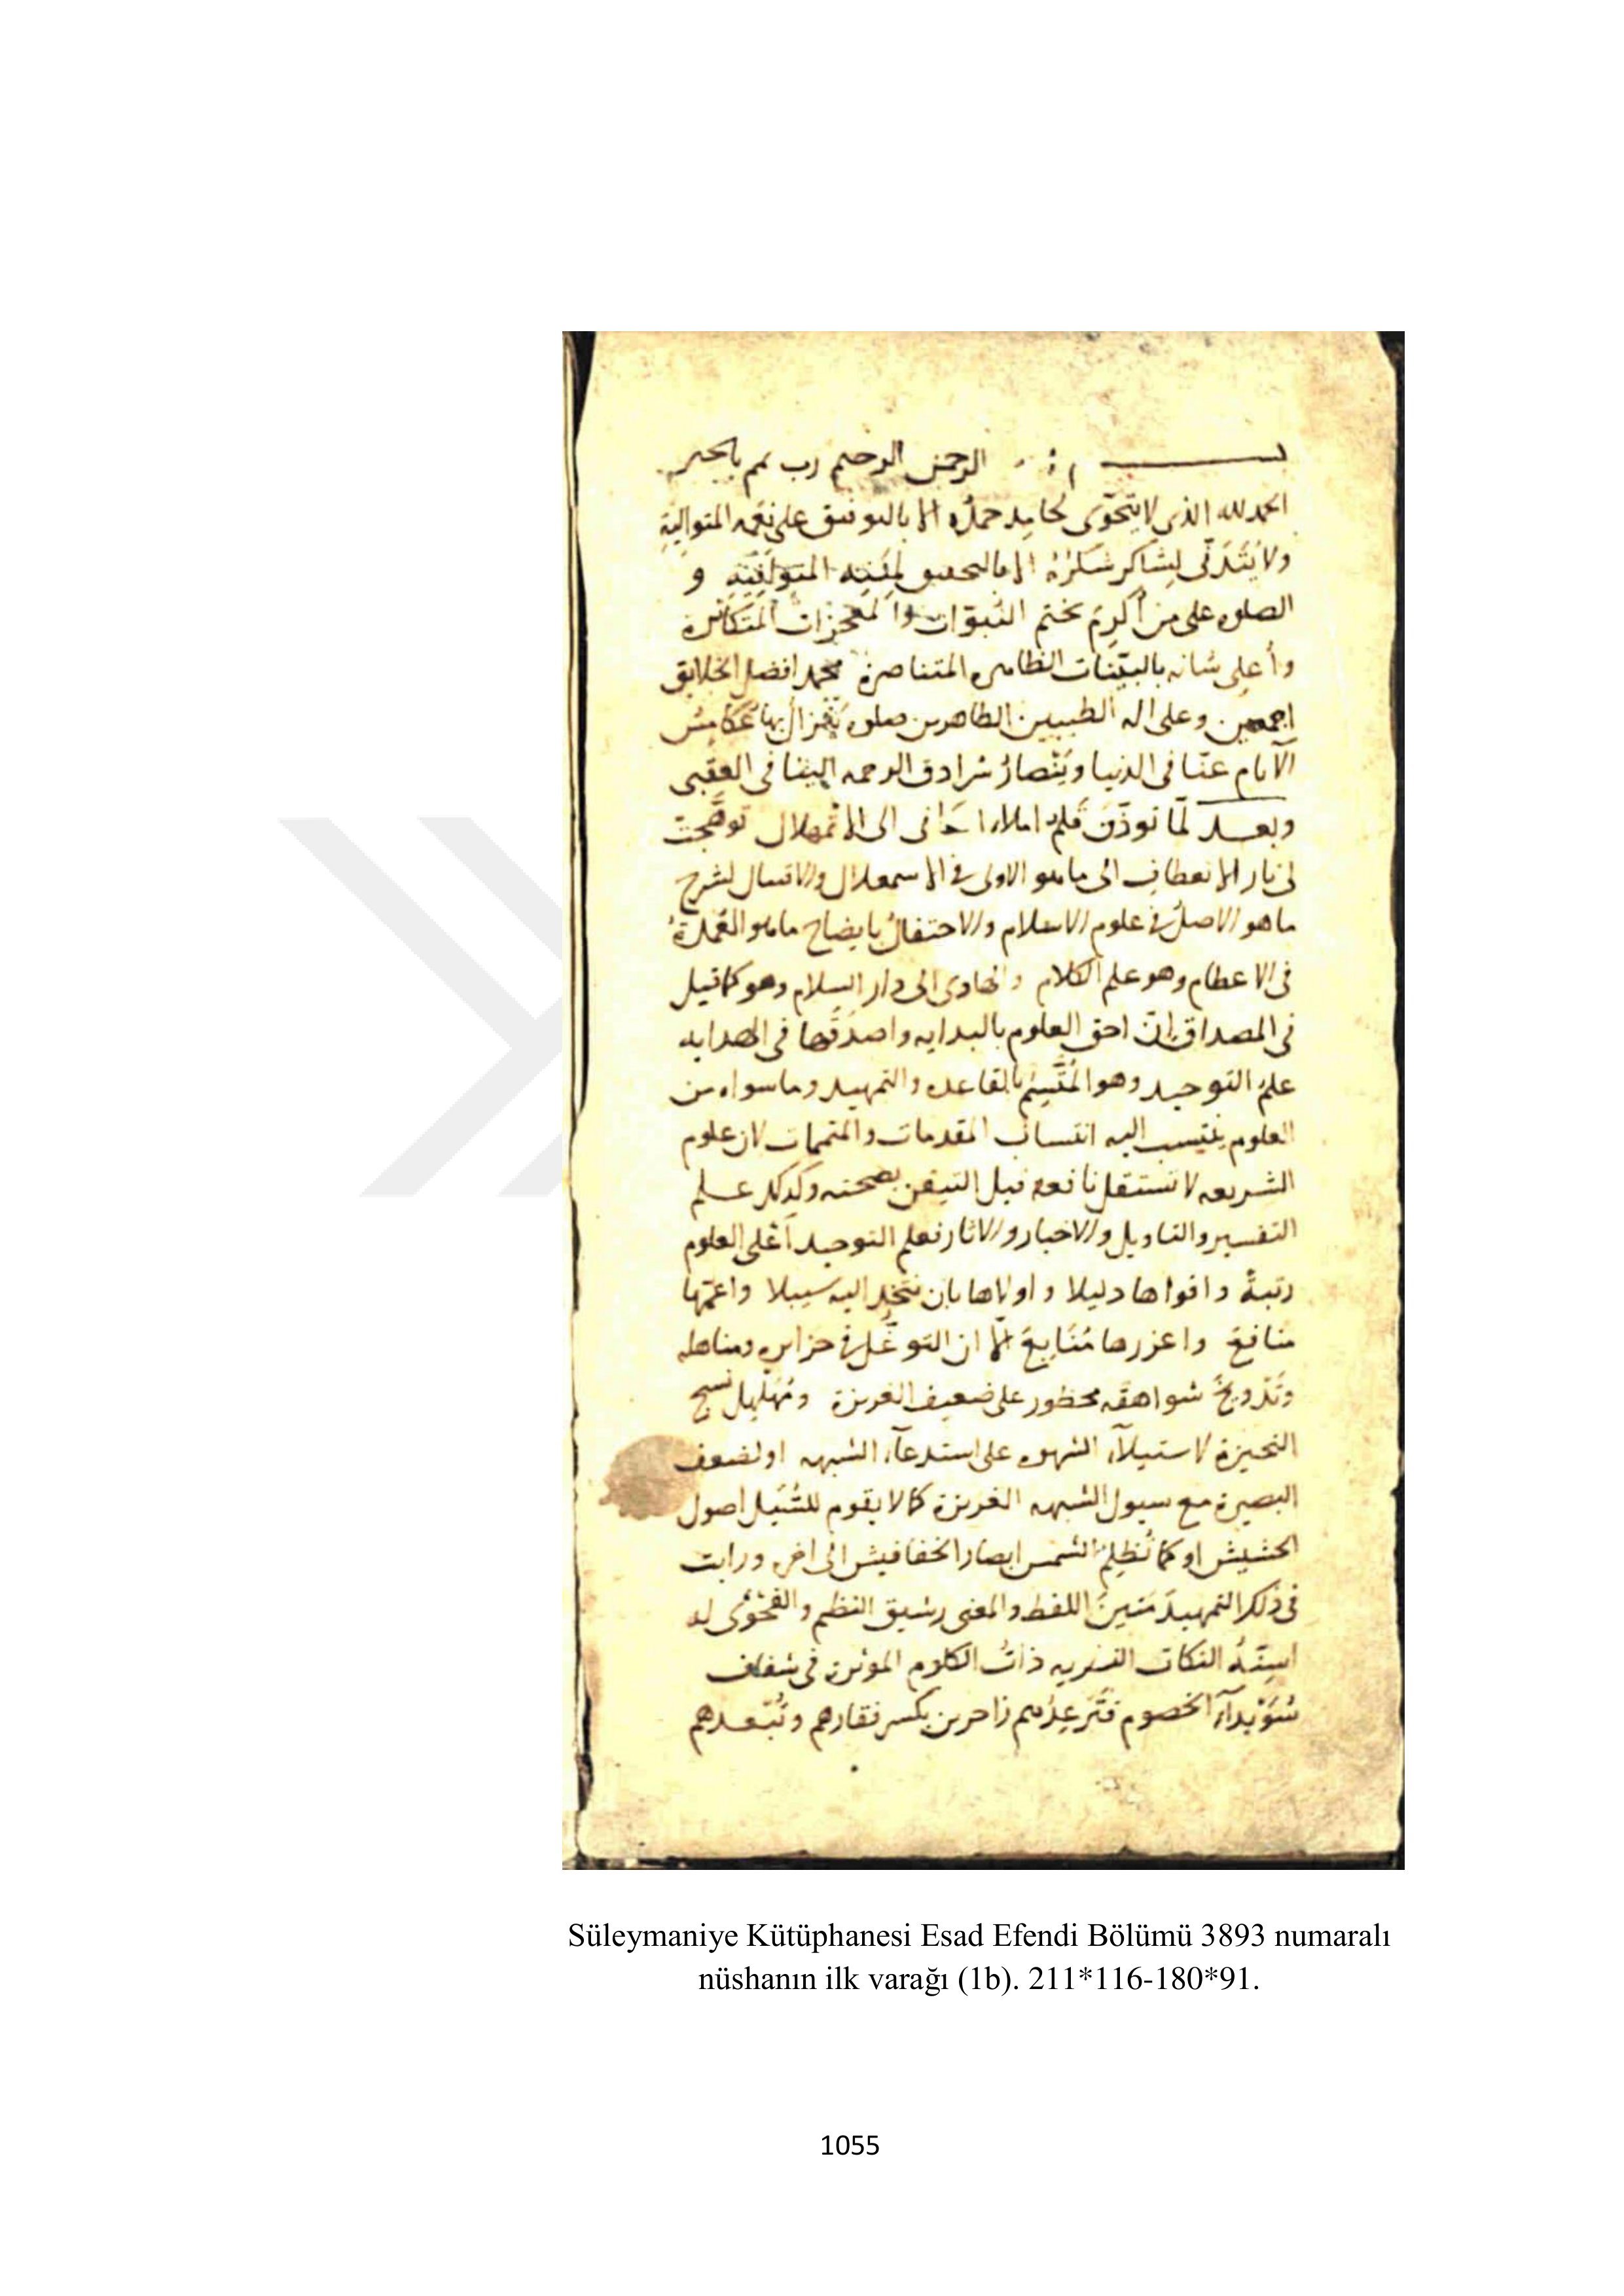 بســـــــــم الرحمن الرحيم رب تمم بالخير
الحمد لله الذى لا يتحوّى لحامد حمدُه الا بالتوفيق على نعمه المتوالية
ولا يتدنّى لشاكر شكرُهُ الا بالتحقيق لمننه المتوافية و
الصلوه على من أُكرِمَ بختم النبوّات والمعجزات المتكاثرة
وأُعلِى شانه بالبيّنات الظاهره المتناصرة محمد افضل الخلايق
اجمعين وعلى اله الطيبين الطاهرين صلوه بها
الآثام عنّا فى الدنيا سُرادق الرحمه الينا فى العقبى
وبعــد لمّا قلم املاء الى
الانعطاف الى ما هو الاولى فى لشرح
ما هو الاصل فى علوم الاسلام والاحتفال بايضاح ما هو العُمدةُ
فى وهو علم الكلام والهادى الى دار السلام وهو كما قيل
فى المصداق انّ احق العلوم بالبدايه واصدقها فى الهدايه
علمُ التوحيد وهو المُتّسِمُ بالقاعده والتمهيد وما سواه من
العلوم ينتسب اليه انتساب المقدمات والمتممات لان علوم
الشريعه لا تستقل نافعه قبل التيقن بصحته وكذلك علم
التفسير والتاويل والاخبار والاثار فعلم التوحيد أعلى العلوم
رتبةً واقواها دليلا واولاها بان يتخذ اليه سبيلا واعمّها
منافعَ واغزرها مَنَابِعَ الّا ان التوغّل فى ومناهله
وتَدْويخَ شواهقه محظور على ضعيف الغريزة نسج
النحيزة لاستيلآء الشهوه على استدعآء الشبهه او لضعف
البصيرة مع سيول الشبهه الغزيرة كما لا يقوم للسَّيل اصول
الحشيش او كما تُظلِمُ الشمس ابصار الخفافيش الى اخره ورايت
فى ذلك التمهيدَ مَتينَ اللفظ والمعنى رشيق النظم والفَحْوَى له
اسِنّةُ النكات ذاتُ الكلوم المؤثرة فى شغاف
سُوَيْدآءِ الخصوم بكسر فقارهم
Süleymaniye Kütüphanesi Esad Efendi Bölümü 3893 numaralı
nüshanın ilk varağı (1b). 211*116-180*91.
1055